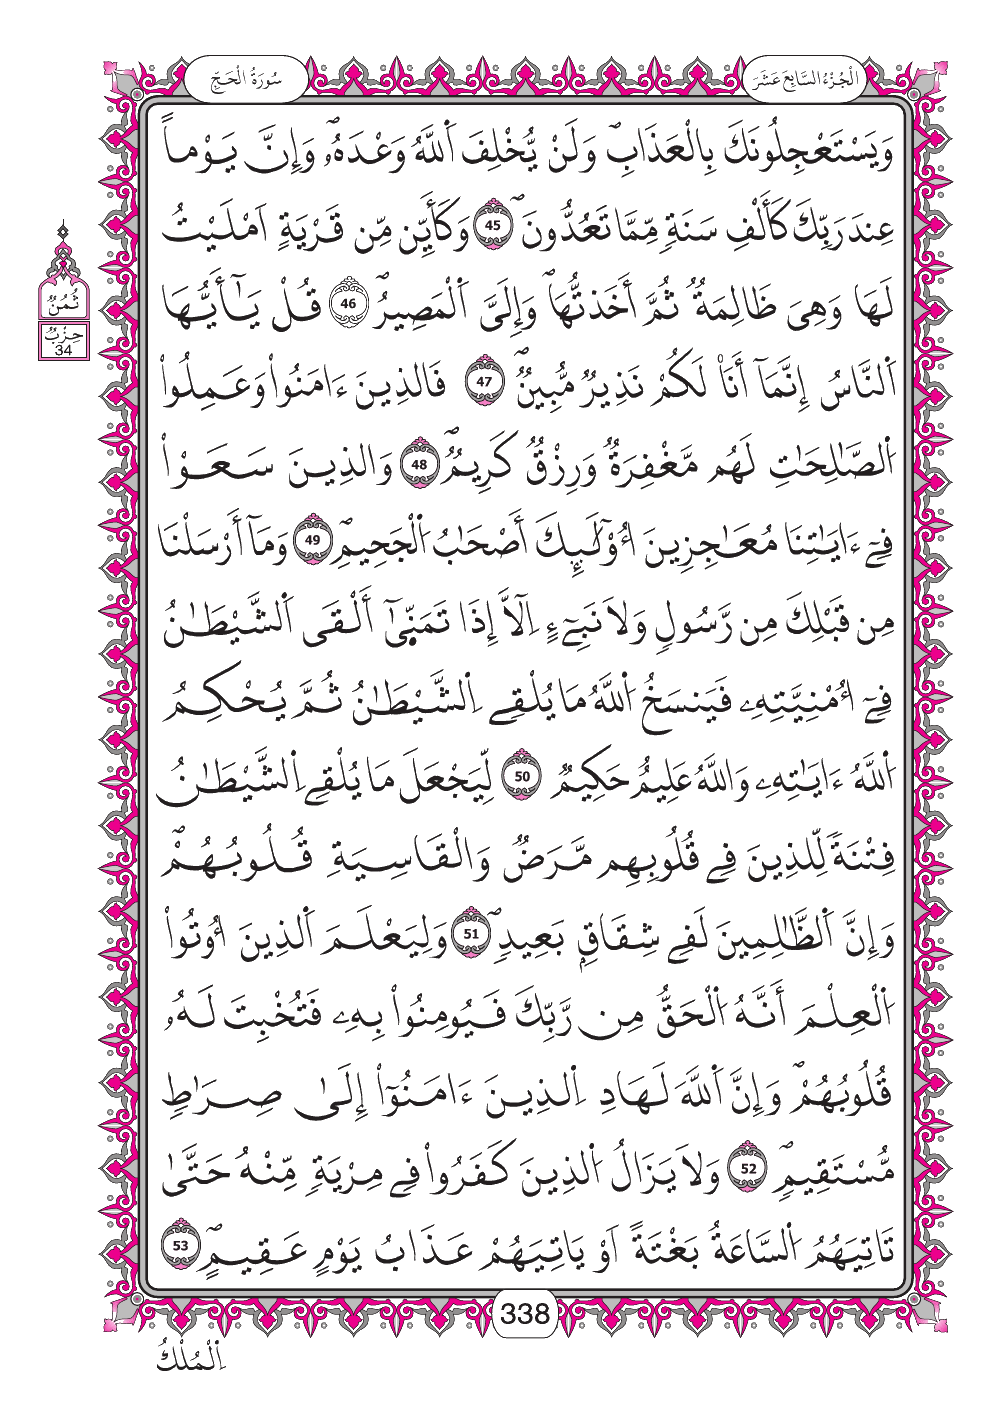 الْجُزْءُ السَّابِعَ عَشَرَ
سُورَةُ الْحَجِّ
وَيَسْتَعْجِلُونَكَ بِالْعَذَابِۖ وَلَنْ يُّخْلِفَ اَ۬للَّهُ وَعْدَهُۥۖ وَإِنَّ يَوْماً
عِندَ رَبِّكَ كَأَلْفِ سَنَةٖ مِّمَّا تَعُدُّونَۖ 45 وَكَأَيِّن مِّن قَرْيَةٍ اَمْلَيْتُ
لَهَا وَهِىَ ظَالِمَةٞ ثُمَّ أَخَذتُّهَاۖ وَإِلَىَّ اَ۬لْمَصِيرُۖ 46 قُلْ يَٰٓأَيُّهَا
اَ۬لنَّاسُ إِنَّمَآ أَنَا۠ لَكُمْ نَذِيرٞ مُّبِينٞۖ 47 فَالذِينَ ءَامَنُواْ وَعَمِلُواْ
اُ۬لصَّٰلِحَٰتِ لَهُم مَّغْفِرَةٞ وَرِزْقٞ كَرِيمٞۖ 48 وَالذِينَ سَعَوْاْ
فِےٓ ءَايَٰتِنَا مُعَٰجِزِينَ أُوْلَٰٓئِكَ أَصْحَٰبُ اُ۬لْجَحِيمِۖ 49 وَمَآ أَرْسَلْنَا
مِن قَبْلِكَ مِن رَّسُولٖ وَلَا نَبِےٓءٍ اِلَّآ إِذَا تَمَنّ۪ىٰٓ أَلْقَى اَ۬لشَّيْطَٰنُ
فِےٓ أُمْنِيَّتِهِۦ فَيَنسَخُ اُ۬للَّهُ مَا يُلْقِے اِ۬لشَّيْطَٰنُ ثُمَّ يُحْكِمُ
اُ۬للَّهُ ءَايَٰتِهِۦ وَاللَّهُ عَلِيمٌ حَكِيمٞ 50 لِّيَجْعَلَ مَا يُلْقِے اِ۬لشَّيْطَٰنُ
فِتْنَةٗ لِّلذِينَ فِے قُلُوبِهِم مَّرَضٞ وَالْقَاسِيَةِ قُلُوبُهُمْۖ
وَإِنَّ اَ۬لظَّٰلِمِينَ لَفِے شِقَاقِۢ بَعِيدٖۖ 51 وَلِيَعْلَمَ اَ۬لذِينَ أُوتُواْ
اُ۬لْعِلْمَ أَنَّهُ اُ۬لْحَقُّ مِن رَّبِّكَ فَيُومِنُواْ بِهِۦ فَتُخْبِتَ لَهُۥ
قُلُوبُهُمْۖ وَإِنَّ اَ۬للَّهَ لَهَادِ اِ۬لذِينَ ءَامَنُوٓاْ إِلَىٰ صِرَٰطٖ
مُّسْتَقِيمٖۖ 52 وَلَا يَزَالُ اُ۬لذِينَ كَفَرُواْ فِے مِرْيَةٖ مِّنْهُ حَتَّىٰ
تَاتِيَهُمُ اُ۬لسَّاعَةُ بَغْتَةً اَوْ يَاتِيَهُمْ عَذَابُ يَوْمٍ عَقِيمٍۖ 53
ثُمُنٌ
حِزْبٌ
34
338
اِ۬لْمُلْكُ